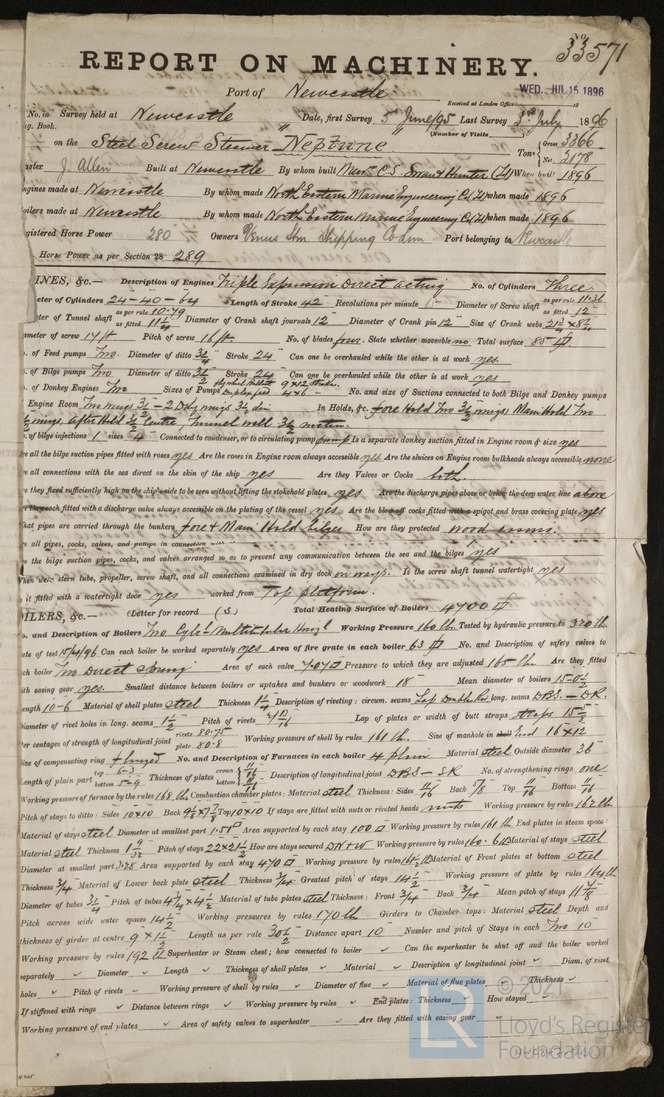 33571
REPORT ON MACHINERY.
Port of Newcastle
WED. JUL 15 1896
Received at London Office 18
No. in Survey held at Newcastle Date, first Survey 5 June/95 Last Survey 3rd July 1896
g. Book. (Number of Visits
on the Steel Screw Steamer Neptune Tons Gross 3366 Net 2178
ster J. Allen Built at Newcastle By whom built Mess C.S. Swan & Hunter (Ld) When built 1896
ngines made at Newcastle By whom made North Eastern Marine Engineering Co (Ld) when made 1896
oilers made at Newcastle By whom made North Eastern Marine Engineering Co (Ld) when made 1896
gistered Horse Power 280 Owners Venus Stm. Shipping Co Port belonging to Newcastle
Horse Power as per Section 28 289
INES, &c.— Description of Engines Triple Expansion Direct acting No. of Cylinders Three
eter of Cylinders 24-40-64 Length of Stroke 42 Revolutions per minute Diameter of Screw shaft as per rule 11.36 as fitted 12
er of Tunnel shaft as per rule 10.79 as fitted 11 1/4 Diameter of Crank shaft journals 12 Diameter of Crank pin 12 Size of Crank webs
ameter of screw 17 ft Pitch of screw 16 ft No. of blades four State whether moveable no Total surface 85
o. of Feed pumps Two Diameter of ditto Stroke 24 Can one be overhauled while the other is at work yes
o. of Bilge pumps Two Diameter of ditto Stroke 24 Can one be overhauled while the other is at work yes
o. of Donkey Engines Two Sizes of Pumps No. and size of Suctions connected to both Bilge and Donkey pumps
Engine Room In Holds, &c. Fore Hold Two 3 1/2 wings Main Hold Two
wings After Hold Centre, Tunnel well
o. of bilge injections 1 sizes 4 Connected to condenser, or to circulating pump pump Is a separate donkey suction fitted in Engine room & size yes
re all the bilge suction pipes fitted with roses yes Are the roses in Engine room always accessible yes Are the sluices on Engine room bulkheads always accessible none
re all connections with the sea direct on the skin of the ship yes Are they Valves or Cocks both
re they fixed sufficiently high on the ship's side to be seen without lifting the stokehold plates yes Are the discharge pipes above or below the deep water line above
re they each fitted with a discharge valve always accessible on the plating of the vessel yes Are the blow off cocks fitted with a spigot and brass covering plate yes
hat pipes are carried through the bunkers Fore & Main Hold bilges How are they protected wood casing
re all pipes, cocks, valves, and pumps in connection with
the bilge suction pipes, cocks, and valves arranged so as to prevent any communication between the sea and the bilges yes
When were stern tube, propeller, screw shaft, and all connections examined in dry dock on ways. Is the screw shaft tunnel watertight yes
is it fitted with a watertight door yes worked from Top platform.
OILERS, &c.— (Letter for record (S) Total Heating Surface of Boilers 4700
o. and Description of Boilers Two Cyl. Multitubular Working Pressure 160 lb Tested by hydraulic pressure to 320 lb
ate of test 15/4/96 Can each boiler be worked separately yes Area of fire grate in each boiler 63 No. and Description of safety valves to
ch boiler Two Direct Spring Area of each valve 7.07 Pressure to which they are adjusted 165 lb. Are they fitted
ith easing gear yes. Smallest distance between boilers or uptakes and bunkers or woodwork 18" Mean diameter of boilers 15-0 1/2
ength 10-6 Material of shell plates steel Thickness Description of riveting: circum. seams Lap Double Riv. long. seams D.B.S. - D.R.
Diameter of rivet holes in long. seams Pitch of rivets Lap of plates or width of butt straps straps 15 5/8
Per centages of strength of longitudinal joint rivets 80.75 plate 80.8 Working pressure of shell by rules 161 lb. Size of manhole in shell end 16 x 12
Size of compensating ring flanged No. and Description of Furnaces in each boiler 4 plain Material steel Outside diameter 36
Length of plain part top 6-3 bottom 5-9 Thickness of plates crown bottom Description of longitudinal joint DBS - SR No. of strengthening rings one
Working pressure of furnace by the rules 168 lb Combustion chamber plates: Material steel Thickness: Sides 11/16 Back 7/8 Top 11/16 Bottom 11/16
Pitch of stays to ditto: Sides 10x10 Back Top 10x10 If stays are fitted with nuts or riveted heads nuts Working pressure by rules 162 lb
Material of stays steel Diameter at smallest part Area supported by each stay 100 Working pressure by rules 161 lb. End plates in steam space:
Material steel Thickness Pitch of stays 22x21 1/2 How are stays secured DN+W Working pressure by rules 160.6 lb Material of stays steel
Diameter at smallest part Area supported by each stay 470 Working pressure by rules Material of Front plates at bottom steel
Thickness 3/4 Material of Lower back plate steel Thickness 3/4 Greatest pitch of stays 14 1/2 Working pressure of plate by rules
Diameter of tubes 3 1/4 Pitch of tubes Material of tube plates steel Thickness: Front 3/4 Back 3/4 Mean pitch of stays
Pitch across wide water spaces 14 1/2 Working pressures by rules 170 lb Girders to Chamber tops: Material steel Depth and
thickness of girder at centre 9 x 1 1/2 Length as per rule 30 1/2 Distance apart 10 Number and pitch of Stays in each Two 10
Working pressure by rules 192 lb Superheater or Steam chest; how connected to boiler Can the superheater be shut off and the boiler worked
separately Diameter Length Thickness of shell plates Material Description of longitudinal joint Diam. of rivet
holes Pitch of rivets Working pressure of shell by rules Diameter of flue Material of flue plates Thickness
If stiffened with rings Distance between rings Working pressure by rules End plates: Thickness How stayed
Working pressure of end plates Area of safety valves to superheater Are they fitted with easing gear
LR
© 2021
Lloyd's Register
Foundation